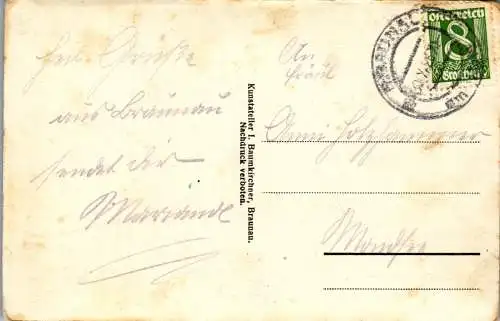 Herzl. Grüße
aus Braunau
sendet dir
Mariandl
Kunstatelier I. Baumkirchner, Braunau.
Nachdruck verboten.
An
Fräul
Anni Holzhammer
Mondsee
BRAUNAU
Österreich
8
Groschen